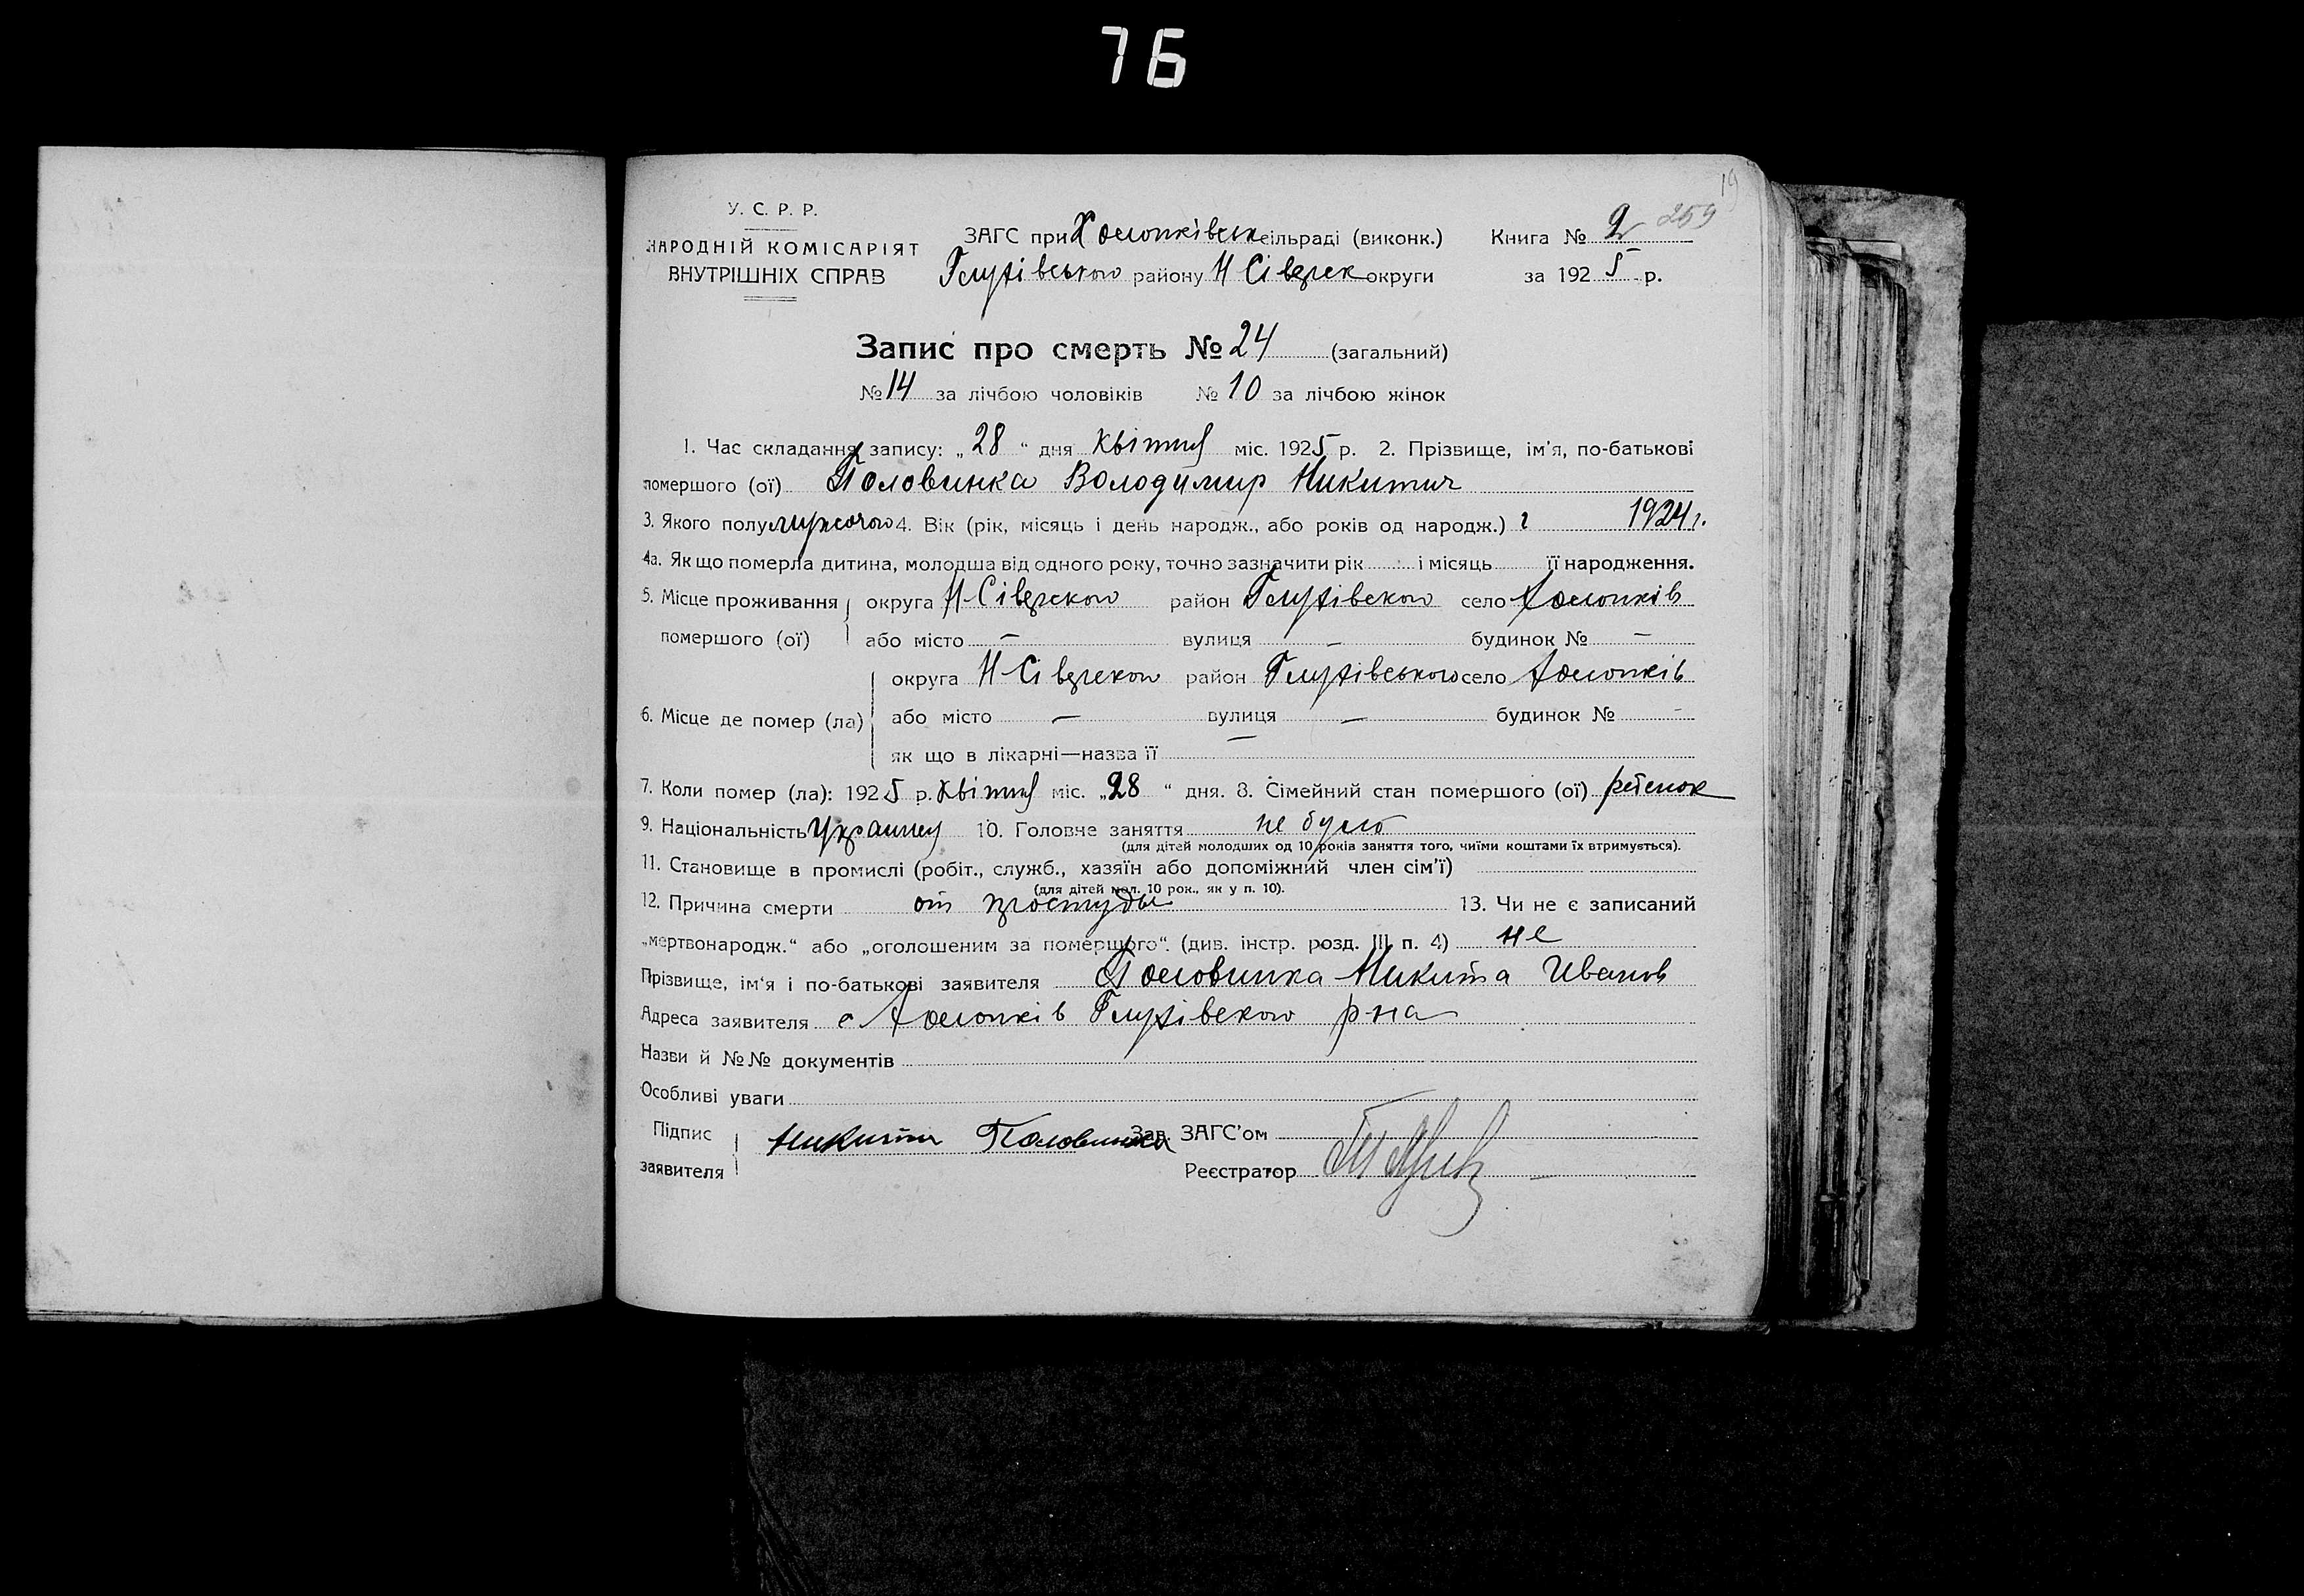 76
19
У. С. Р. Р.
НАРОДНІЙ КОМІСАРІЯТ
ВНУТРІШНІХ СПРАВ
ЗАГС при Холопківськ сільраді (виконк.)
Глухівського району Н Сіверск округи
Книга № 2 259
за 1925 р.
Запис про смерть № 24 (загальний)
№ 14 за лічбою чоловіків № 10 за лічбою жінок
1. Час складання запису: „28“ дня Квітня міс. 1925 р. 2. Прізвище, ім'я, по-батькові
помершого (ої) Половинка Володимир Никитич
3. Якого полу мужсочого 4. Вік (рік, місяць і день народж., або років од народж.) 1 1924 г.
4а. Як що померла дитина, молодша від одного року, точно зазначити рік і місяць її народження.
5. Місце проживання округа Н-Сіверского район Глухівского село Холопків
помершого (ої) або місто — вулиця — будинок № —
округа Н-Сіверского район Глухівського село Холопків
6. Місце де помер (ла) або місто — вулиця — будинок № —
як що в лікарні—назва її —
7. Коли помер (ла): 1925 р. Квітня міс. „28“ дня. 8. Сімейний стан помершого (ої) ребенок
9. Національність Украинец 10. Головне заняття не було
(для дітей молодших од 10 років заняття того, чиїми коштами їх втримується).
11. Становище в промислі (робіт., служб., хазяїн або допоміжний член сім'ї)
(для дітей мол. 10 рок., як у п. 10).
12. Причина смерти от простуды 13. Чи не є записаний
„мертвонародж.“ або „оголошеним за помершого“. (див. інстр. розд. III п. 4) не
Прізвище, ім'я і по-батькові заявителя Половинка Никита Иванов
Адреса заявителя с Холопків Глухівского р на
Назви й №№ документів
Особливі уваги
Підпис заявителя Никита Половинка Зав. ЗАГС'ом
Реєстратор